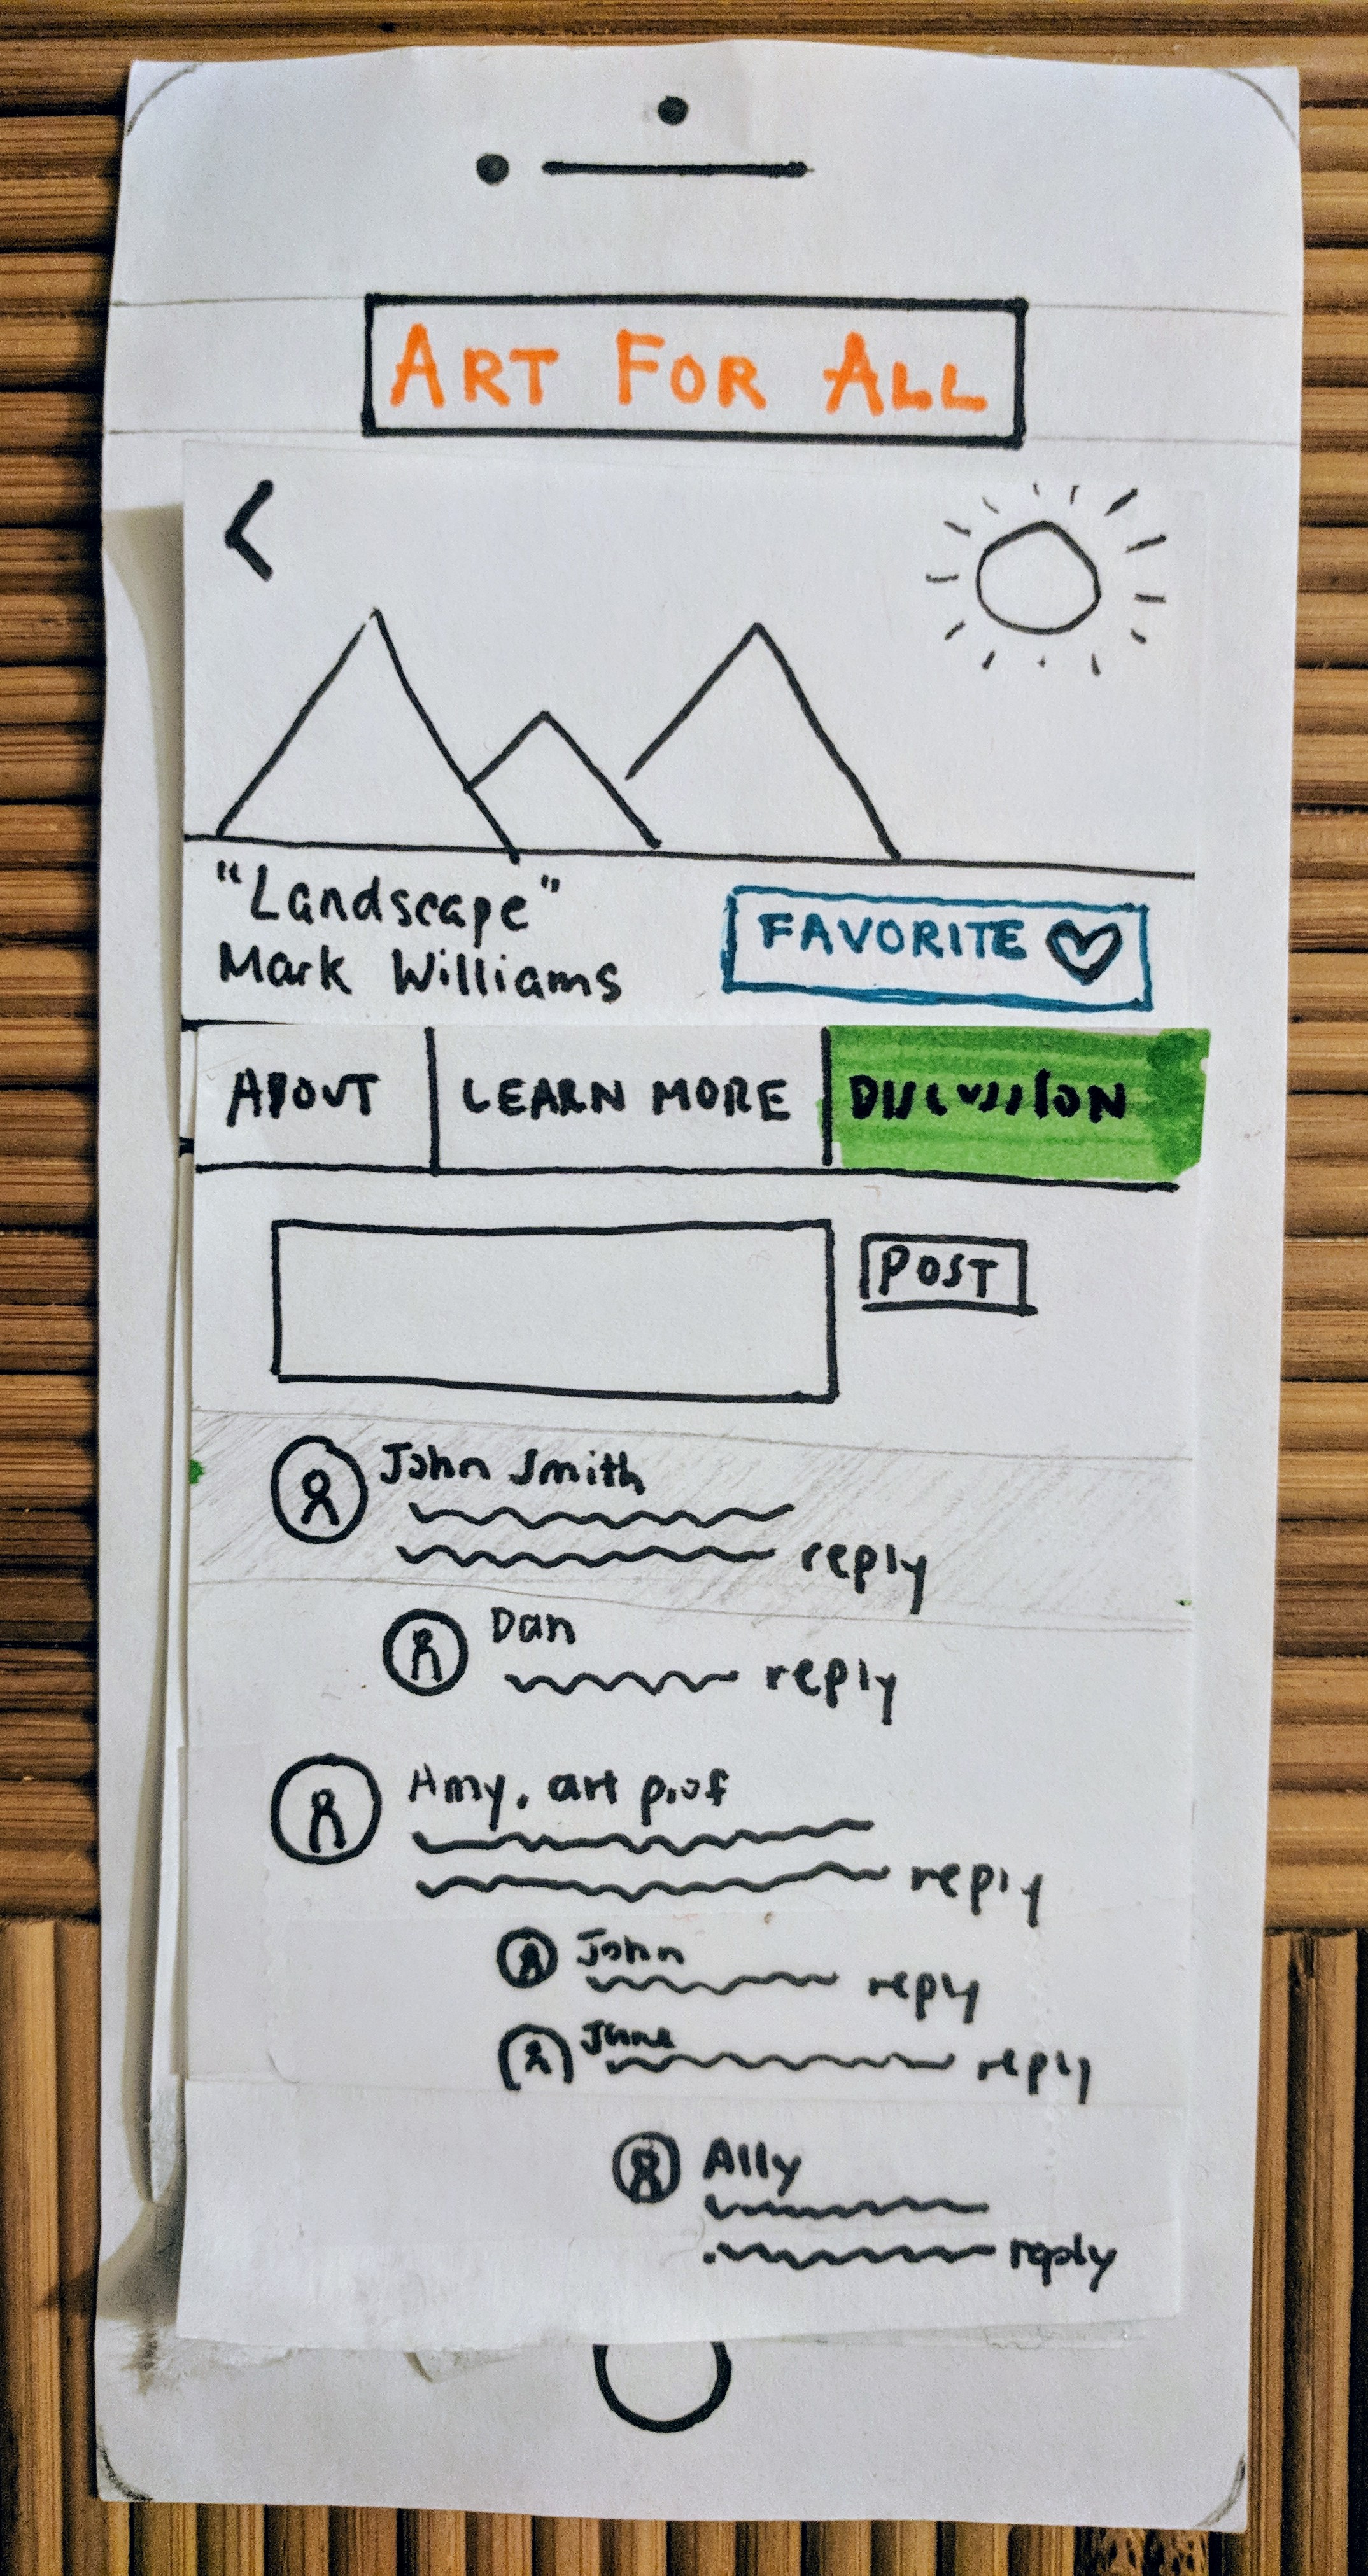 ART FOR ALL
"Landscape"
Mark Williams
FAVORITE
ABOUT
LEARN MORE
DISCUSSION
POST
John Smith
reply
Dan
reply
Amy, art prof
reply
John
reply
Jane
reply
Ally
reply